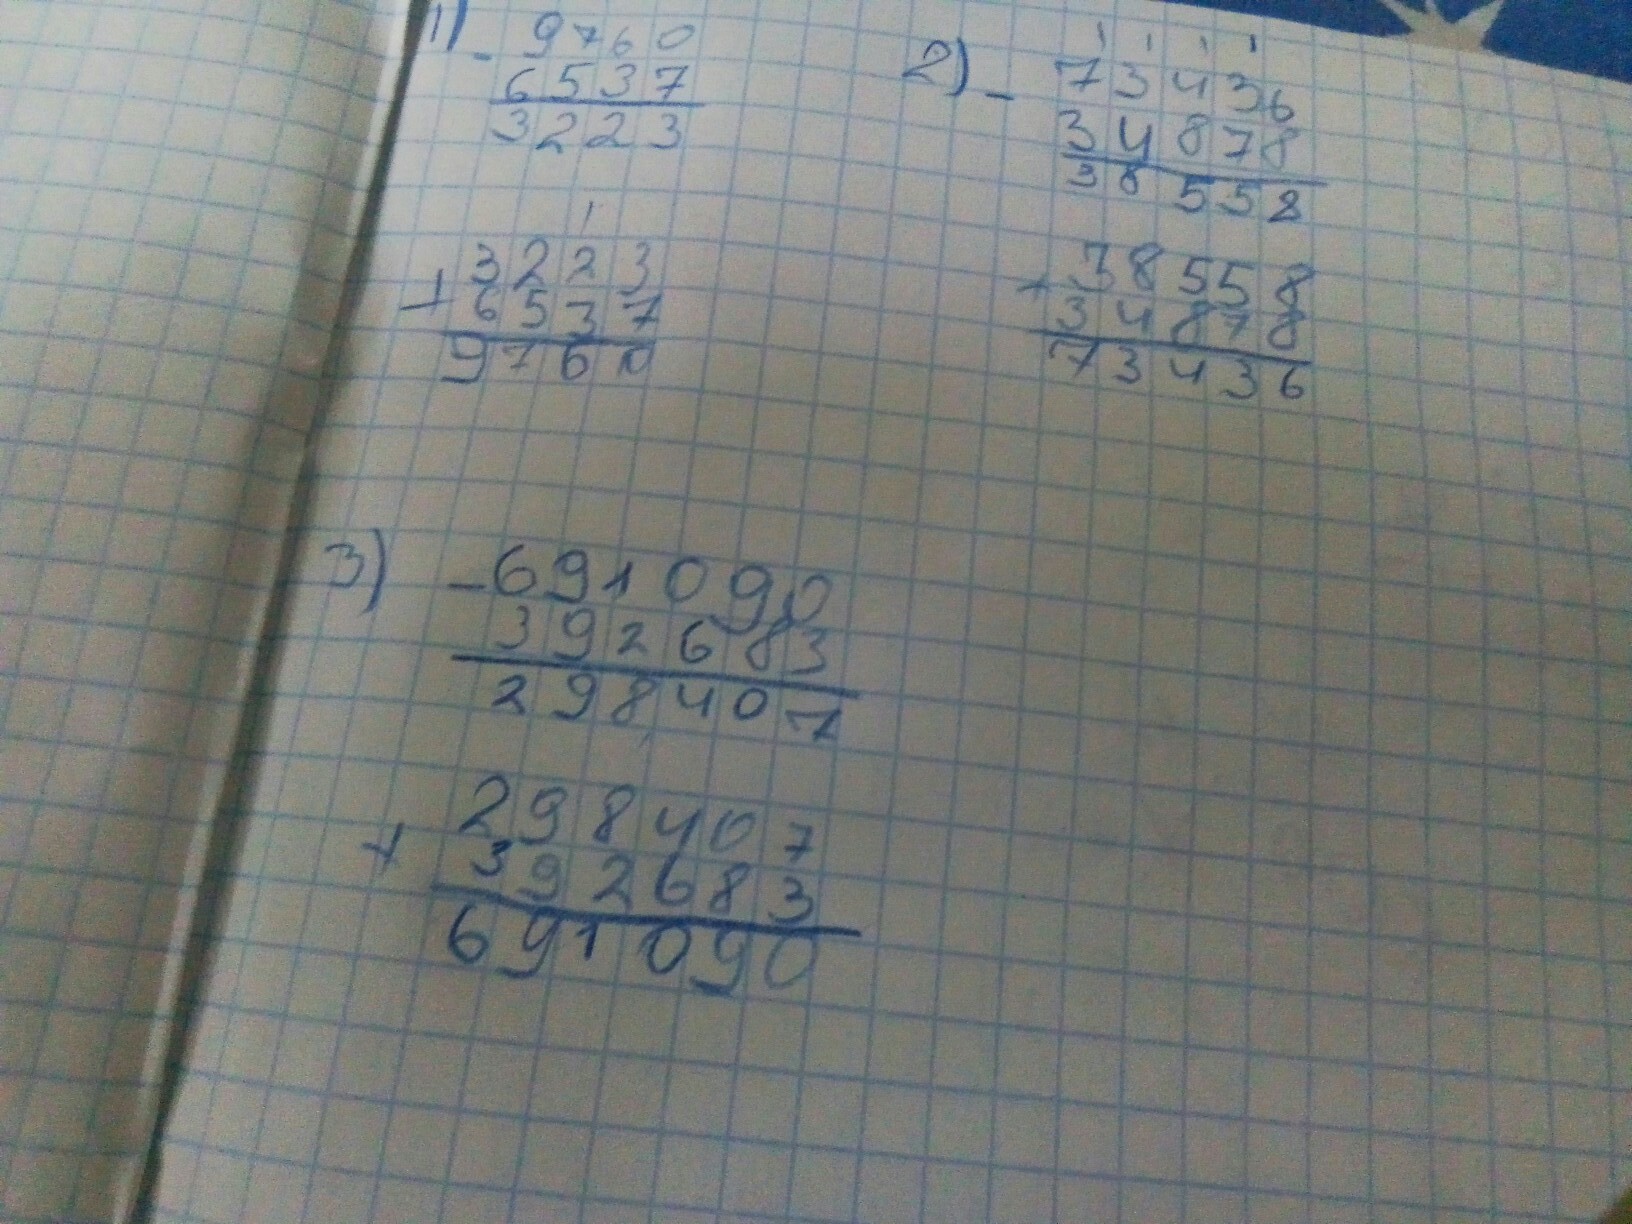 1) - 9760
6537
3223
1
+ 3223
6537
9760
1 1 1 1
2) - 73436
34878
38558
+ 38558
34878
73436
3) - 691090
392683
298407
+ 298407
392683
691090